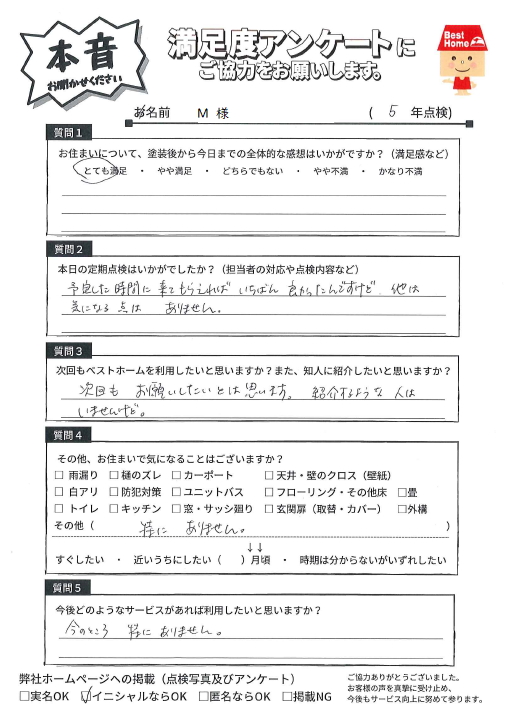 本音
お聞かせください
満足度アンケートに
ご協力をお願いします。
Best
Home
お名前 M 様 ( 5 年点検)
質問1
お住まいについて、塗装後から今日までの全体的な感想はいかがですか?(満足感など)
とても満足 ・ やや満足 ・ どちらでもない ・ やや不満 ・ かなり不満
質問2
本日の定期点検はいかがでしたか?(担当者の対応や点検内容など)
予定した時間に来てもらえればいちばん良かったんですけど、他は
気になる点は ありません。
質問3
次回もベストホームを利用したいと思いますか?また、知人に紹介したいと思いますか?
次回も お願いしたいとは思います。紹介するような人は
いませんけど。
質問4
その他、お住まいで気になることはございますか?
□ 雨漏り □ 樋のズレ □ カーポート □ 天井・壁のクロス(壁紙)
□ 白アリ □ 防犯対策 □ ユニットバス □ フローリング・その他床 □畳
□ トイレ □ キッチン □ 窓・サッシ廻り □ 玄関扉(取替・カバー) □外構
その他( 特に ありません。 )
↓↓
すぐしたい ・ 近いうちにしたい( )月頃 ・ 時期は分からないがいずれしたい
質問5
今後どのようなサービスがあれば利用したいと思いますか?
今のところ 特に ありません。
弊社ホームページへの掲載(点検写真及びアンケート)
□実名OK ☑イニシャルならOK □匿名ならOK □掲載NG
ご協力ありがとうございました。
お客様の声を真摯に受け止め、
今後もサービス向上に努めて参ります。